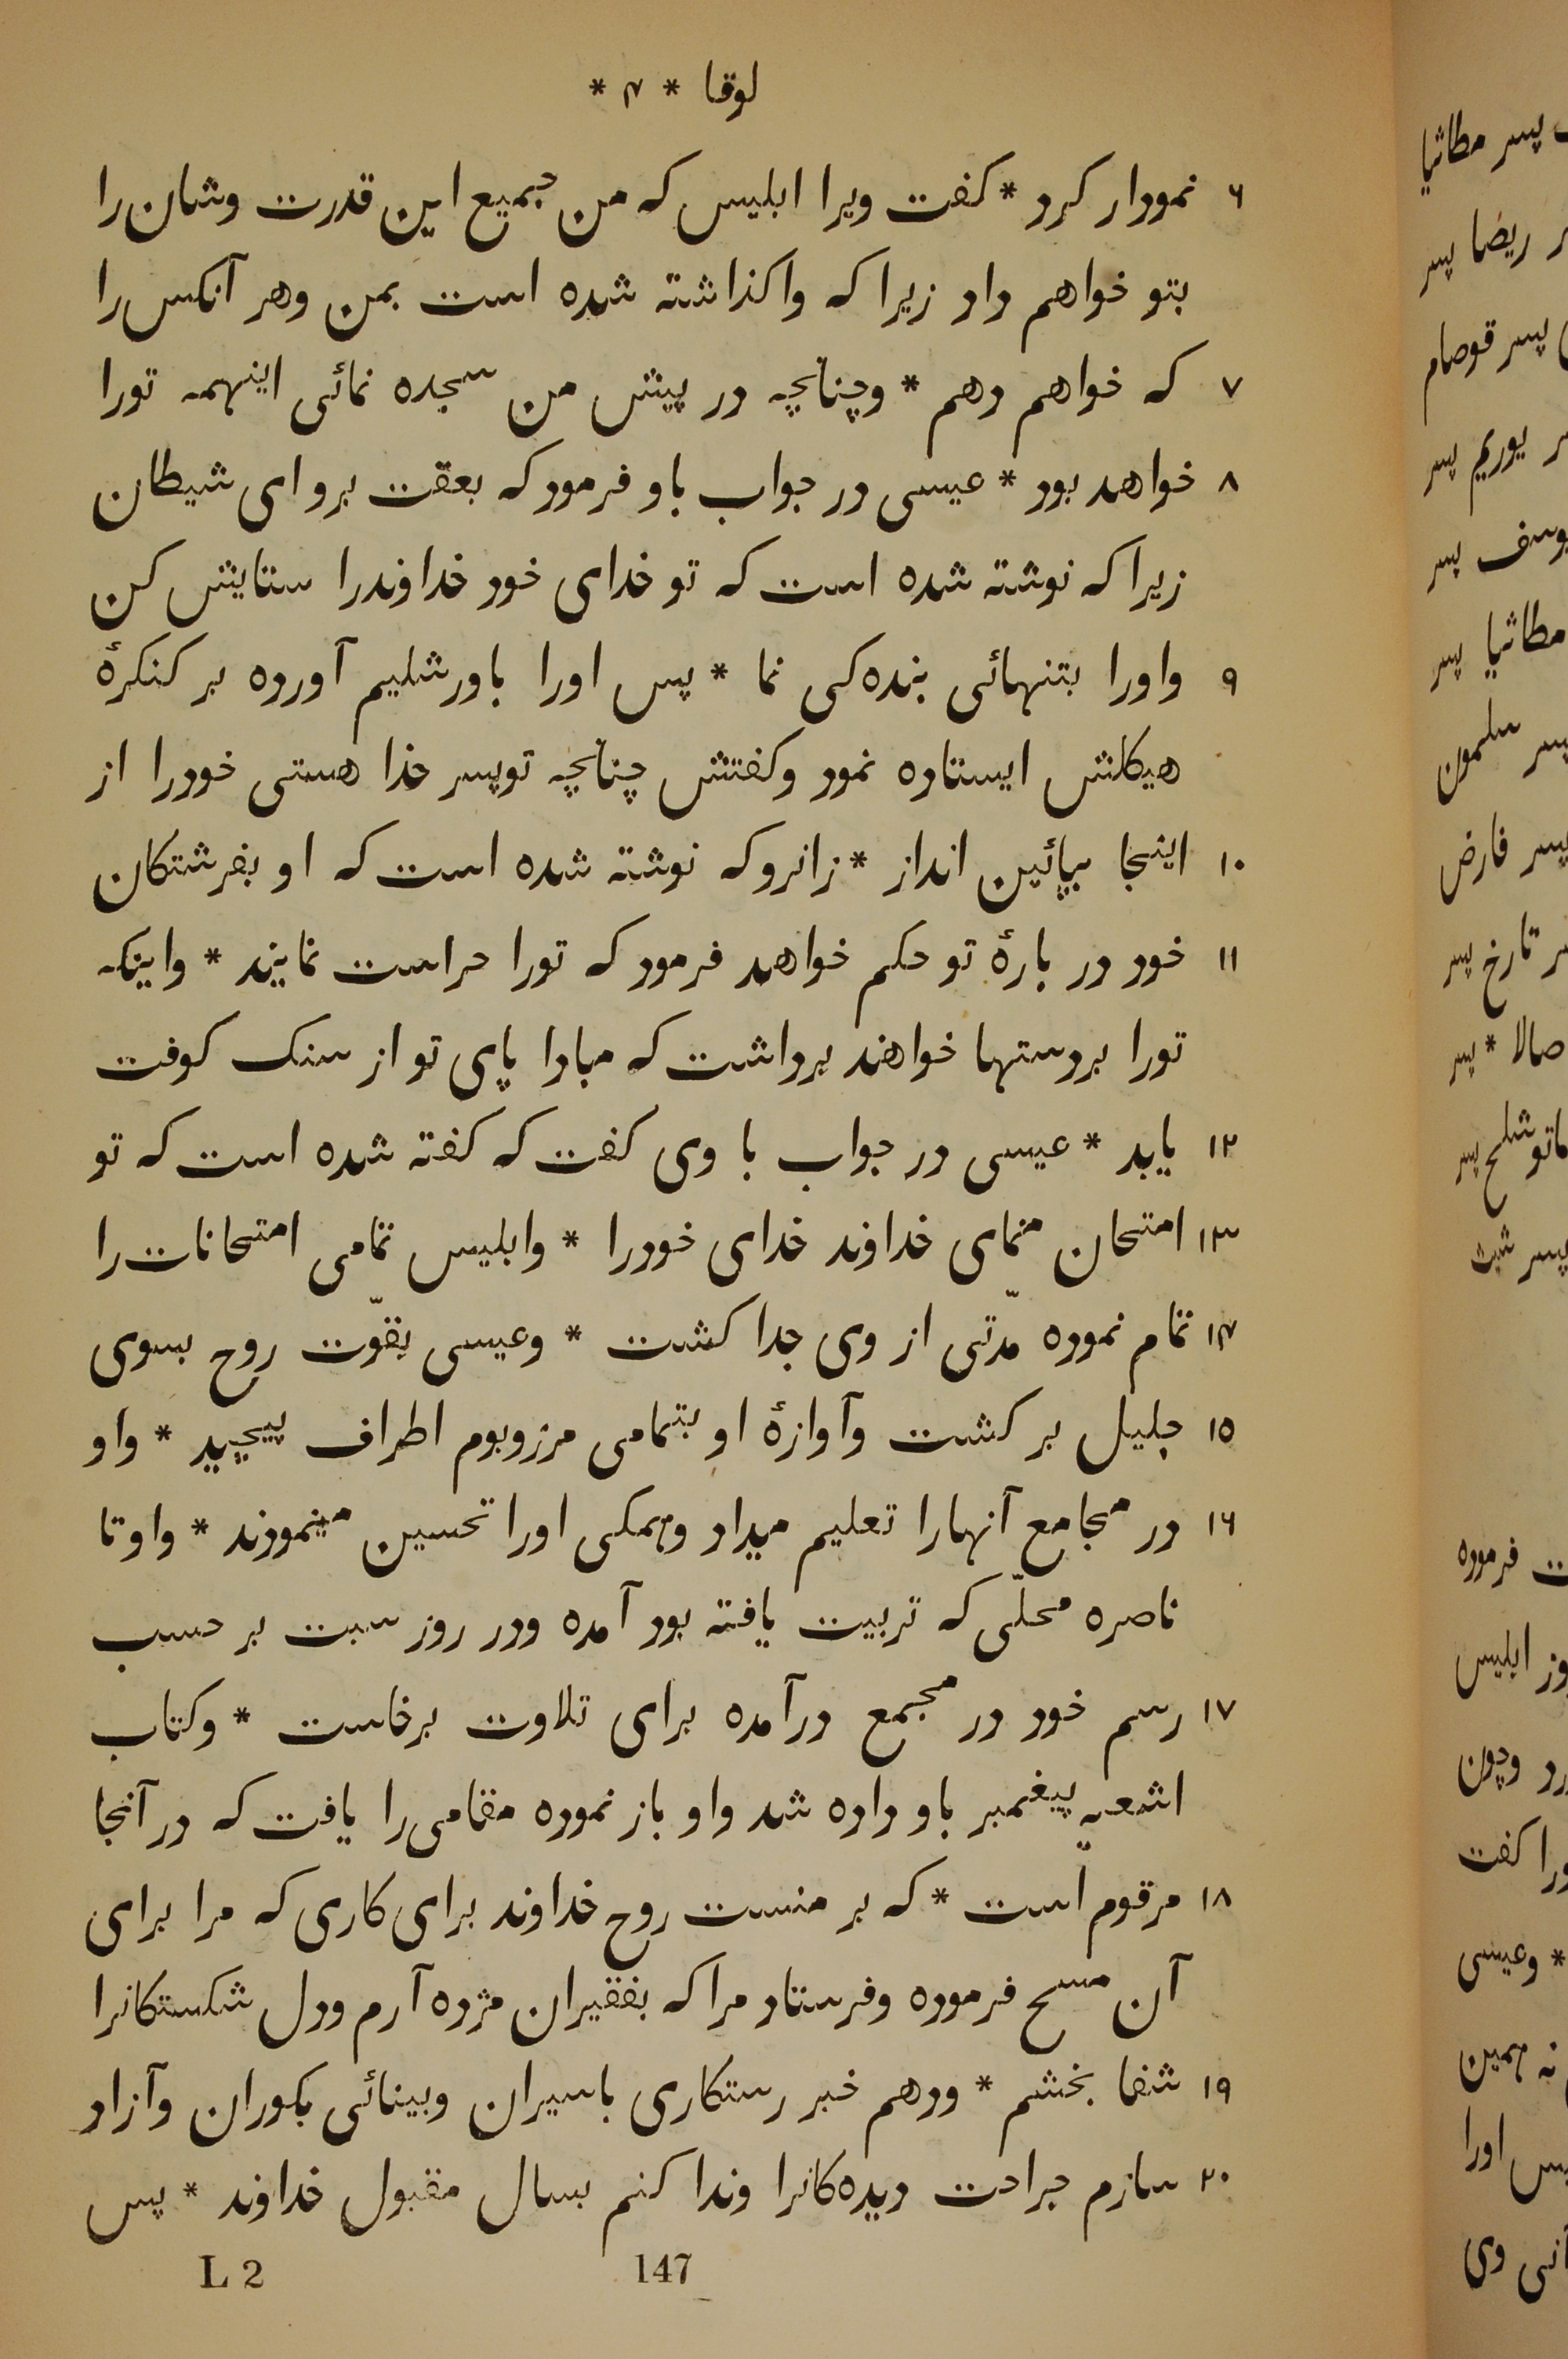 لوقا * ۴ *
۶ نمودار کرد * کفت ویرا ابلیس که من جمیع این قدرت وشان را
بتو خواهم داد زیرا که واکذاشته شده است بمن وهر آنکس را
۷ که خواهم دهم * وچنانچه در پیش من سجده نمائی اینهمه تورا
۸ خواهد بود * عیسی در جواب باو فرمود که بعقت برو ای شیطان
زیرا که نوشته شده است که تو خدای خود خداوندرا ستایش کن
۹ واورا بتنهائی بنده‌کی نما * پس اورا باورشلیم آورده بر کنکرهٔ
هیکلش ایستاده نمود وکفتش چنانچه توپسر خدا هستی خودرا از
۱۰ اینجا بپائین انداز * زانرو که نوشته شده است که او بفرشتکان
۱۱ خود در بارهٔ تو حکم خواهد فرمود که تورا حراست نمایند * واینکه
تورا بردستها خواهند برداشت که مبادا پای تو از سنک کوفت
۱۲ یابد * عیسی در جواب با وی کفت که کفته شده است که تو
۱۳ امتحان منمای خداوند خدای خودرا * وابلیس تمامی امتحانات را
۱۴ تمام نموده مدّتی از وی جدا کشت * وعیسی بقوّت روح بسوی
۱۵ جلیل بر کشت وآوازهٔ او بتمامی مرزوبوم اطراف پیچید * واو
۱۶ در مجامع آنهارا تعلیم میداد وهمکی اورا تحسین مینمودند * واوتا
ناصره محلّی که تربیت یافته بود آمده ودر روز سبت بر حسب
۱۷ رسم خود در مجمع درآمده برای تلاوت برخاست * وکتاب
اشعیه پیغمبر باو داده شد واو باز نموده مقامی را یافت که در آنجا
۱۸ مرقوم است * که بر منست روح خداوند برای کاری که مرا برای
آن مسح فرموده وفرستاد مرا که بفقیران مژده آرم ودل شکستکانرا
۱۹ شفا بخشم * ودهم خبر رستکاری باسیران وبینائی بکوران وآزاد
۲۰ سازم جراحت دیده‌کانرا وندا کنم بسال مقبول خداوند * پس
147
L 2
پسر مطاثیا
ریضا پسر
پسر قوصام
یوریم پسر
پسر
مطاثیا پسر
پسر سلمون
پسر فارض
تارخ پسر
صالا * پسر
پسر
پسر شیث
فرموده
ابلیس
وچون
کفت
* وعیسی
نه همین
اورا
وی